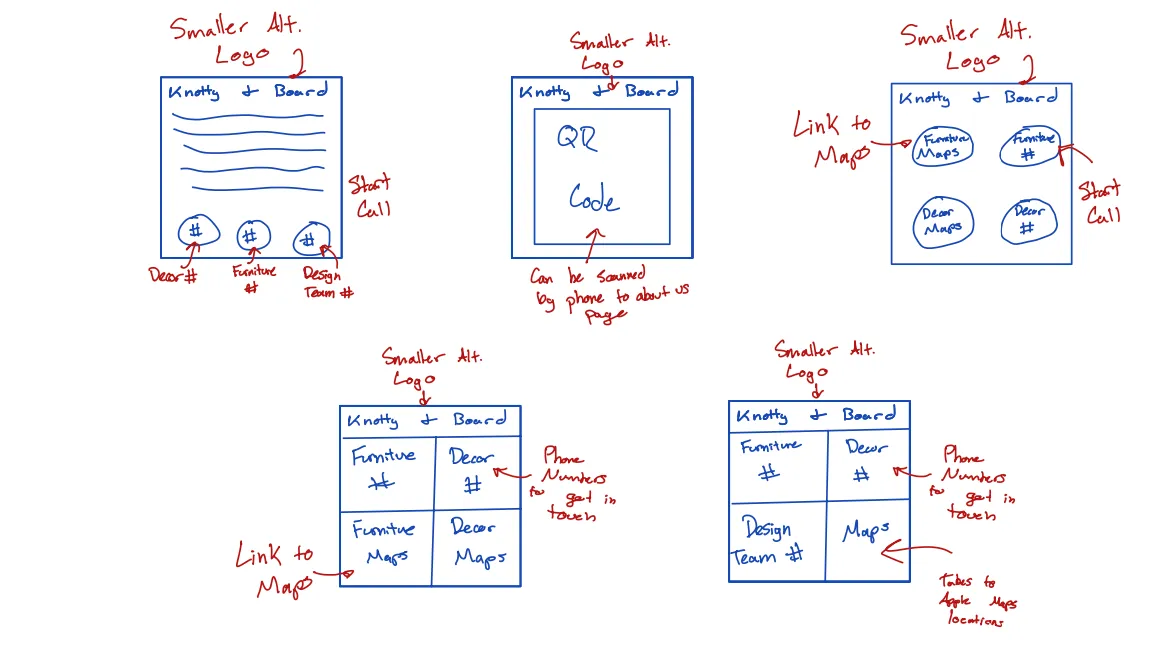 Smaller Alt.
Logo
Knotty & Board
#
#
#
Start
Call
Decor #
Furniture
#
Design
Team #
Smaller Alt.
Logo
Knotty & Board
QR
Code
Can be scanned
by phone to about us
page
Smaller Alt.
Logo
Knotty & Board
Link to
Maps
Furniture
Maps
Furniture
#
Decor
Maps
Decor
#
Start
Call
Smaller Alt.
Logo
Knotty & Board
Furniture
#
Decor
#
Furniture
Maps
Decor
Maps
Phone
Numbers
to get in
touch
Link to
Maps
Smaller Alt.
Logo
Knotty & Board
Furniture
#
Decor
#
Design
Team #
Maps
Phone
Numbers
to get in
touch
Takes to
Apple Maps
locations